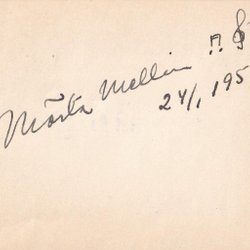 Märta Mellin
24/1 195